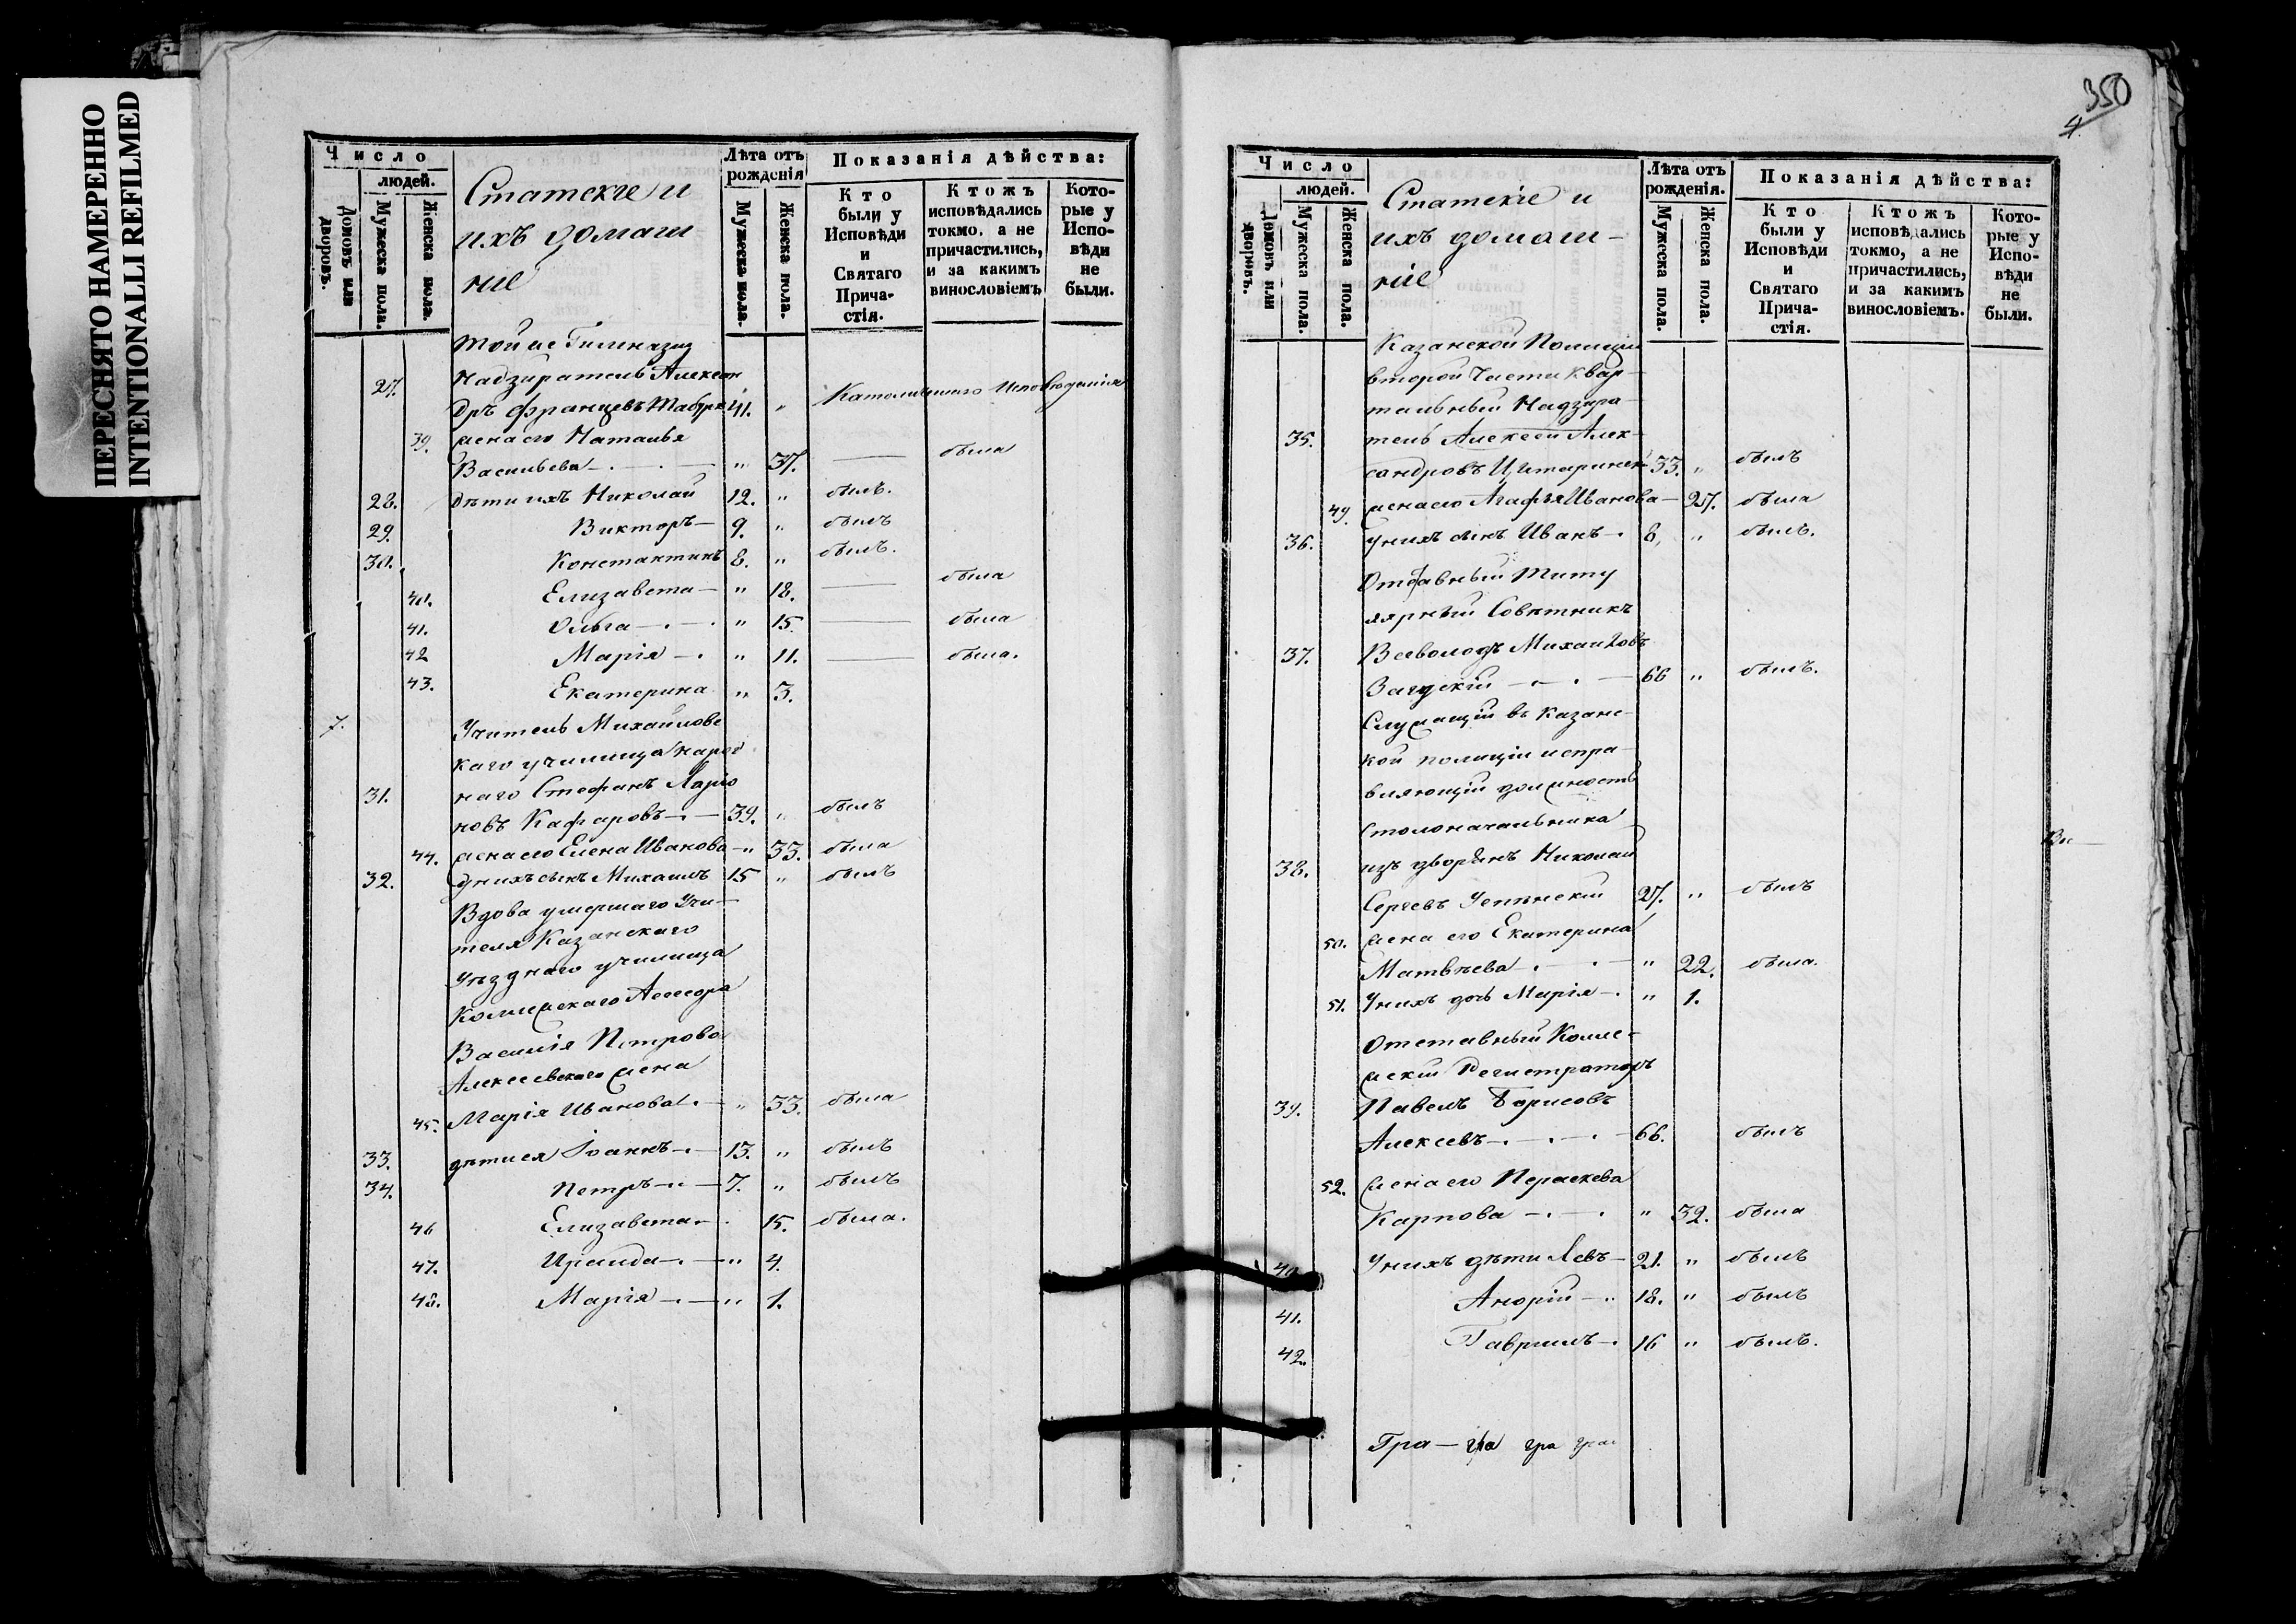 ПЕРЕСНЯТО НАМЕРЕННО
INTENTIONALLI REFILMED
Число
людей.
Домовъ или дворовъ.
Мужеска пола.
Женска пола.
Статскіе и
ихъ домаш
ніе
Лѣта отъ рожденія
Мужеска пола.
Женска пола.
Показанія дѣйства:
Кто были у Исповѣди и Святаго Причастія.
Ктожъ исповѣдались токмо, а не причастились, и за какимъ винословіемъ
Которые у Исповѣди не были.
тойже Гимназіи
27. Надзиратель Алексан
дръ Францевъ 41. " Католическаго Исповѣданія
39. жена его Наталья
Васильева — " 37. — была
28. дѣти ихъ Николай 12. " былъ.
29. Викторъ — 9. " былъ
30. Константинъ 8. " былъ.
40. Елизавета — " 18. — была
41. Ольга — " 15. — была
42 Марія — " 11. — была.
43. Екатерина " 3.
7. Учитель Михайловс
каго училища народ
31. наго Стефанъ Ларіо
новъ Кафаровъ — 39. " былъ
44. жена его Елена Иванова — " 33. была
32. у нихъ сынъ Михаилъ 15 " былъ
Вдова умершаго Учи-
теля Казанскаго
Уѣзднаго училища
Коллежскаго Асессора
Василія Петрова
Алексеевскаго жена
45. Марія Иванова — " 33. была
33. дѣти ея Іоаннъ — 13. " былъ
34. Петръ — 7. " былъ
46 Елизавета — 15. была.
47. Ираида — " 4.
48. Марія — " 1.
350
4.
Число
людей.
Домовъ или дворовъ.
Мужеска пола.
Женска пола.
Статскіе и
ихъ домаш-
ніе
Лѣта отъ рожденія.
Мужеска пола.
Женска пола.
Показанія дѣйства:
Кто были у Исповѣди и Святаго Причастія.
Ктожъ исповѣдались токмо, а не причастились, и за какимъ винословіемъ.
Которые у Исповѣди не были.
Казанской Полиціи
второй Части Квар-
тальный Надзира-
35. тель Алексей Алек-
сандровъ 33. " былъ
49. жена его Агафья Иванова — 27. была
36. у нихъ сынъ Иванъ — 8, " былъ.
Отставный Титу
лярный Совѣтникъ
37. Всеволодъ Михайловъ
66 " былъ.
Служащій въ Казанс-
кой полиціи испра-
вляющій должность
Столоначальника
38. изъ дворянъ Николай
Сергеевъ Успенскій 27. " былъ
50. жена его Екатерина
Матвѣева — " 22. была.
51. У нихъ дочь Марія — " 1.
Отставный Колле-
жскій Регистраторъ
39. Павелъ Борисовъ
Алексеевъ — 66. былъ
52. жена его Пераскева
Карпова — " 32. была
40. У нихъ дѣти Левъ — 21. " былъ
41. Андрій — 18. " былъ
42. Гавріилъ — 16 " былъ.
Гра — гра гра гра